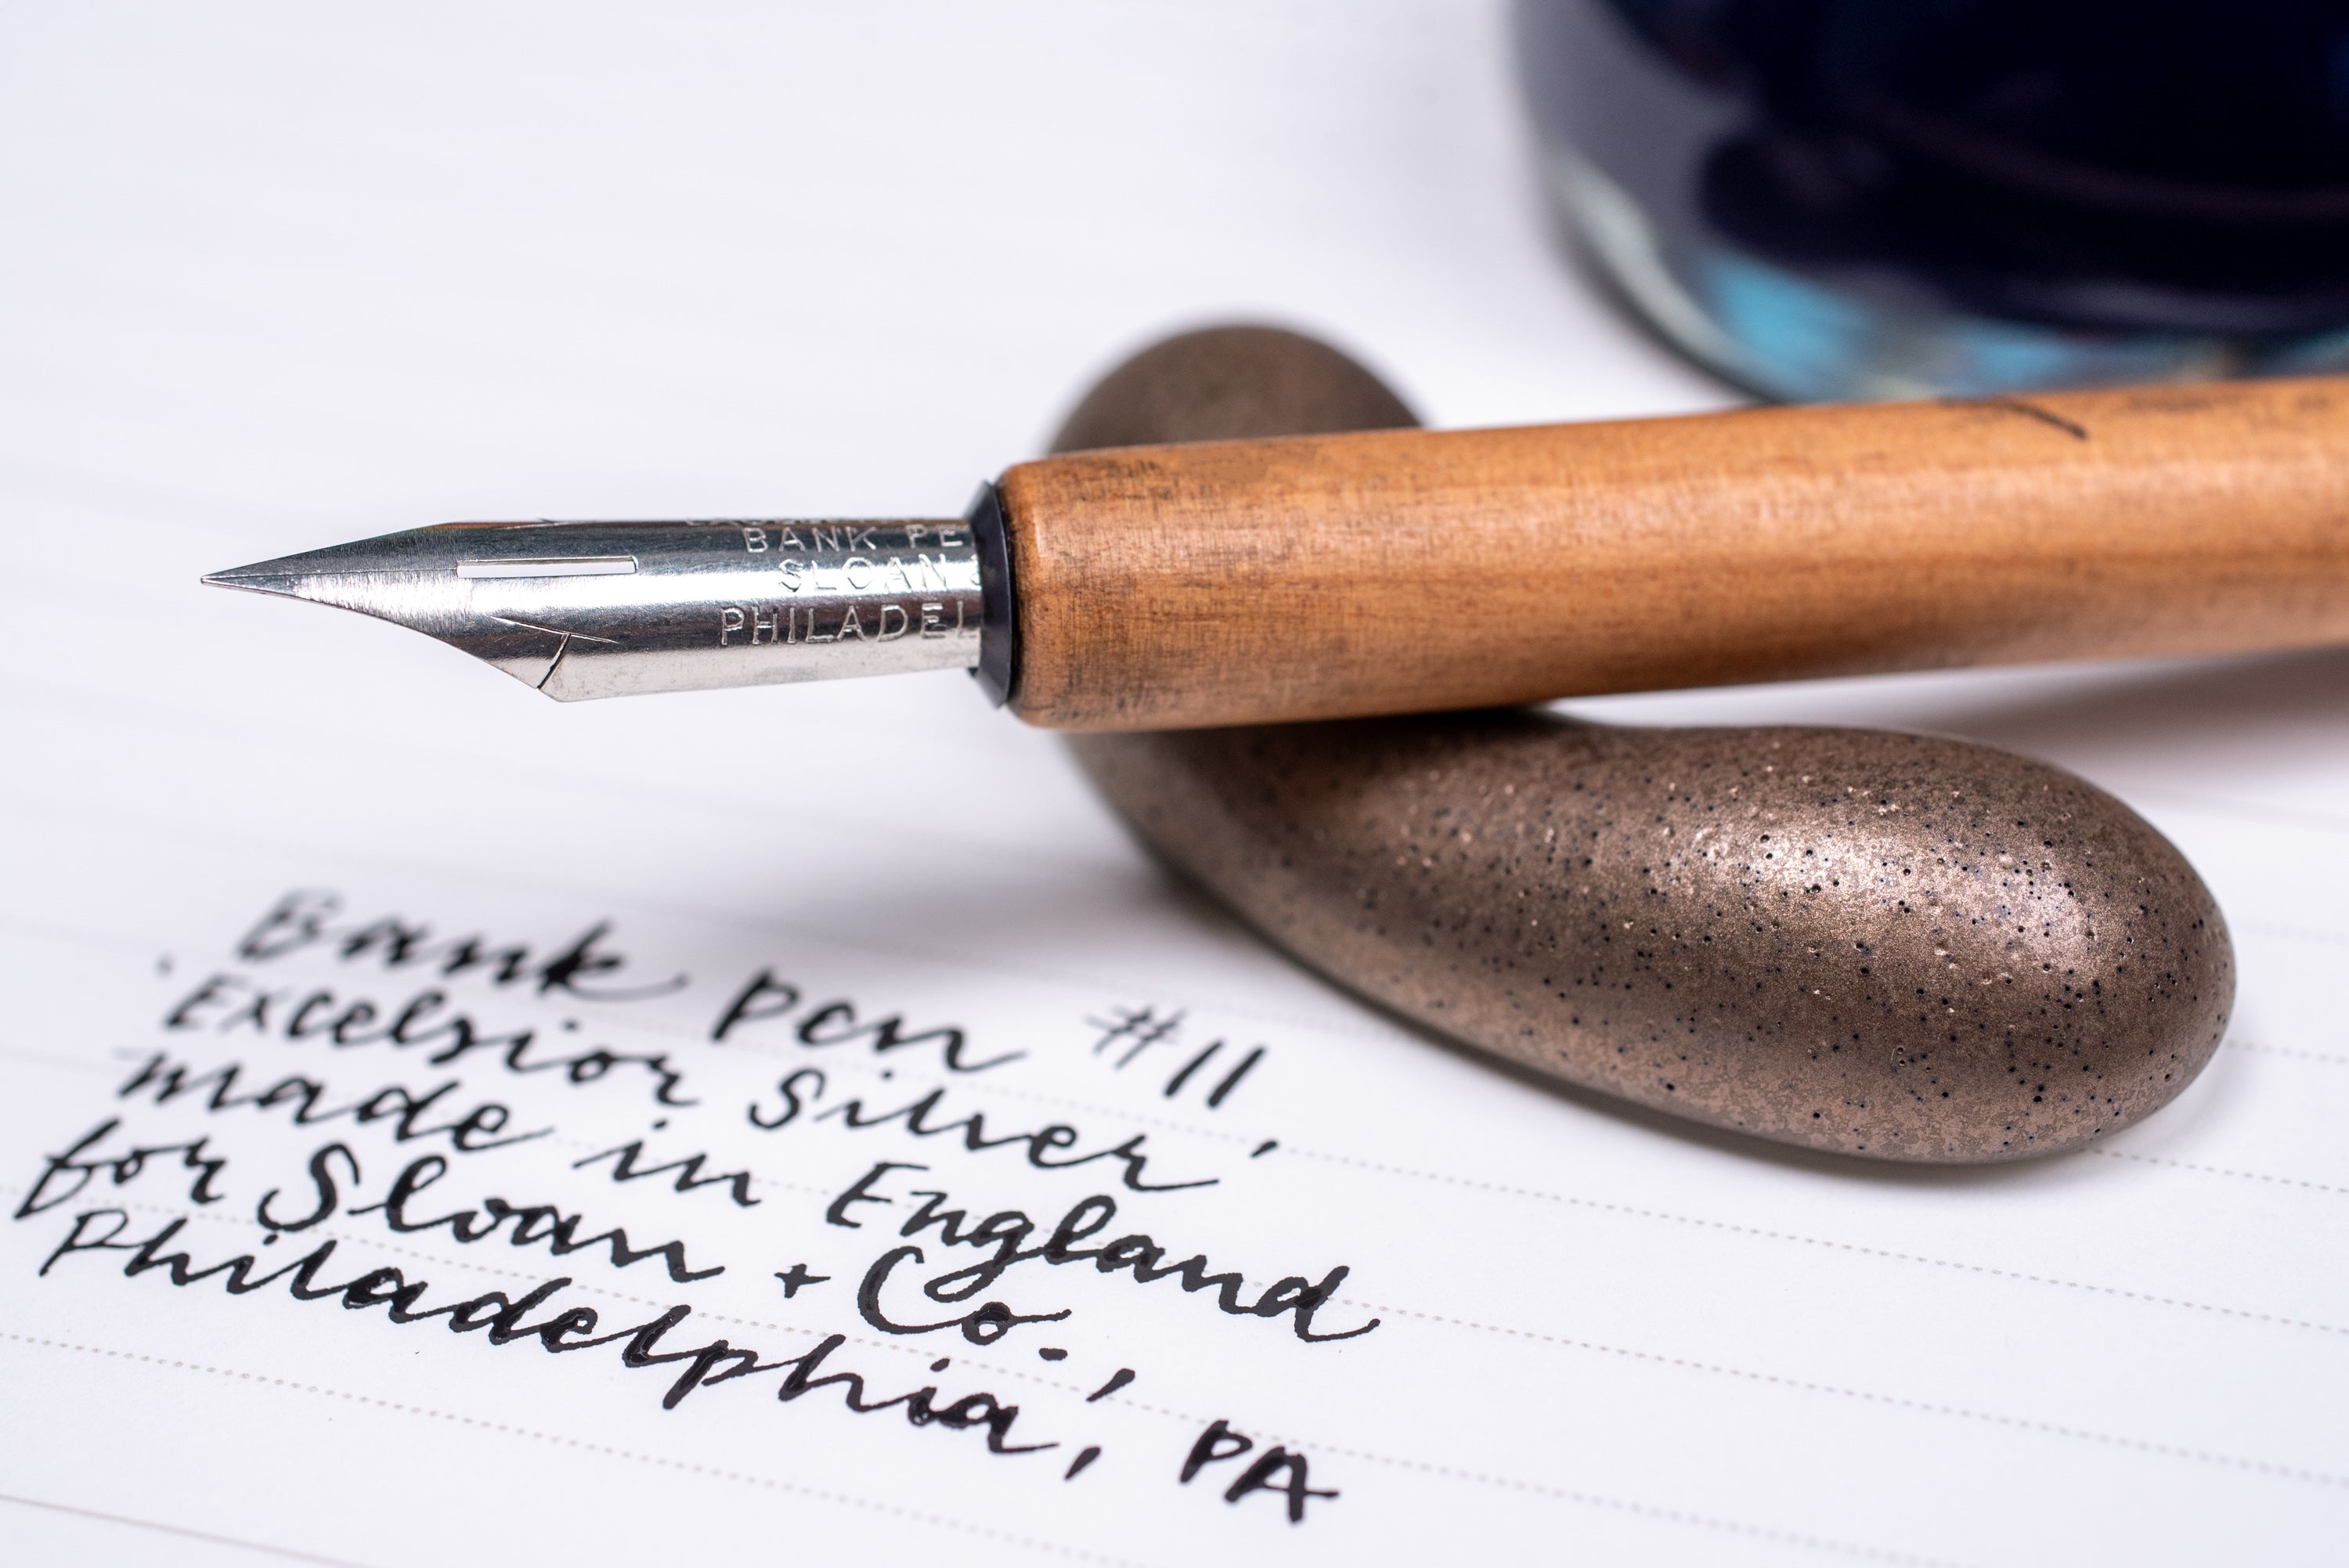 BANK PE
SLOAN
PHILADEL
Bank pen #11
'Excelsior Silver'
made in England
for Sloan + Co.,
Philadelphia, PA